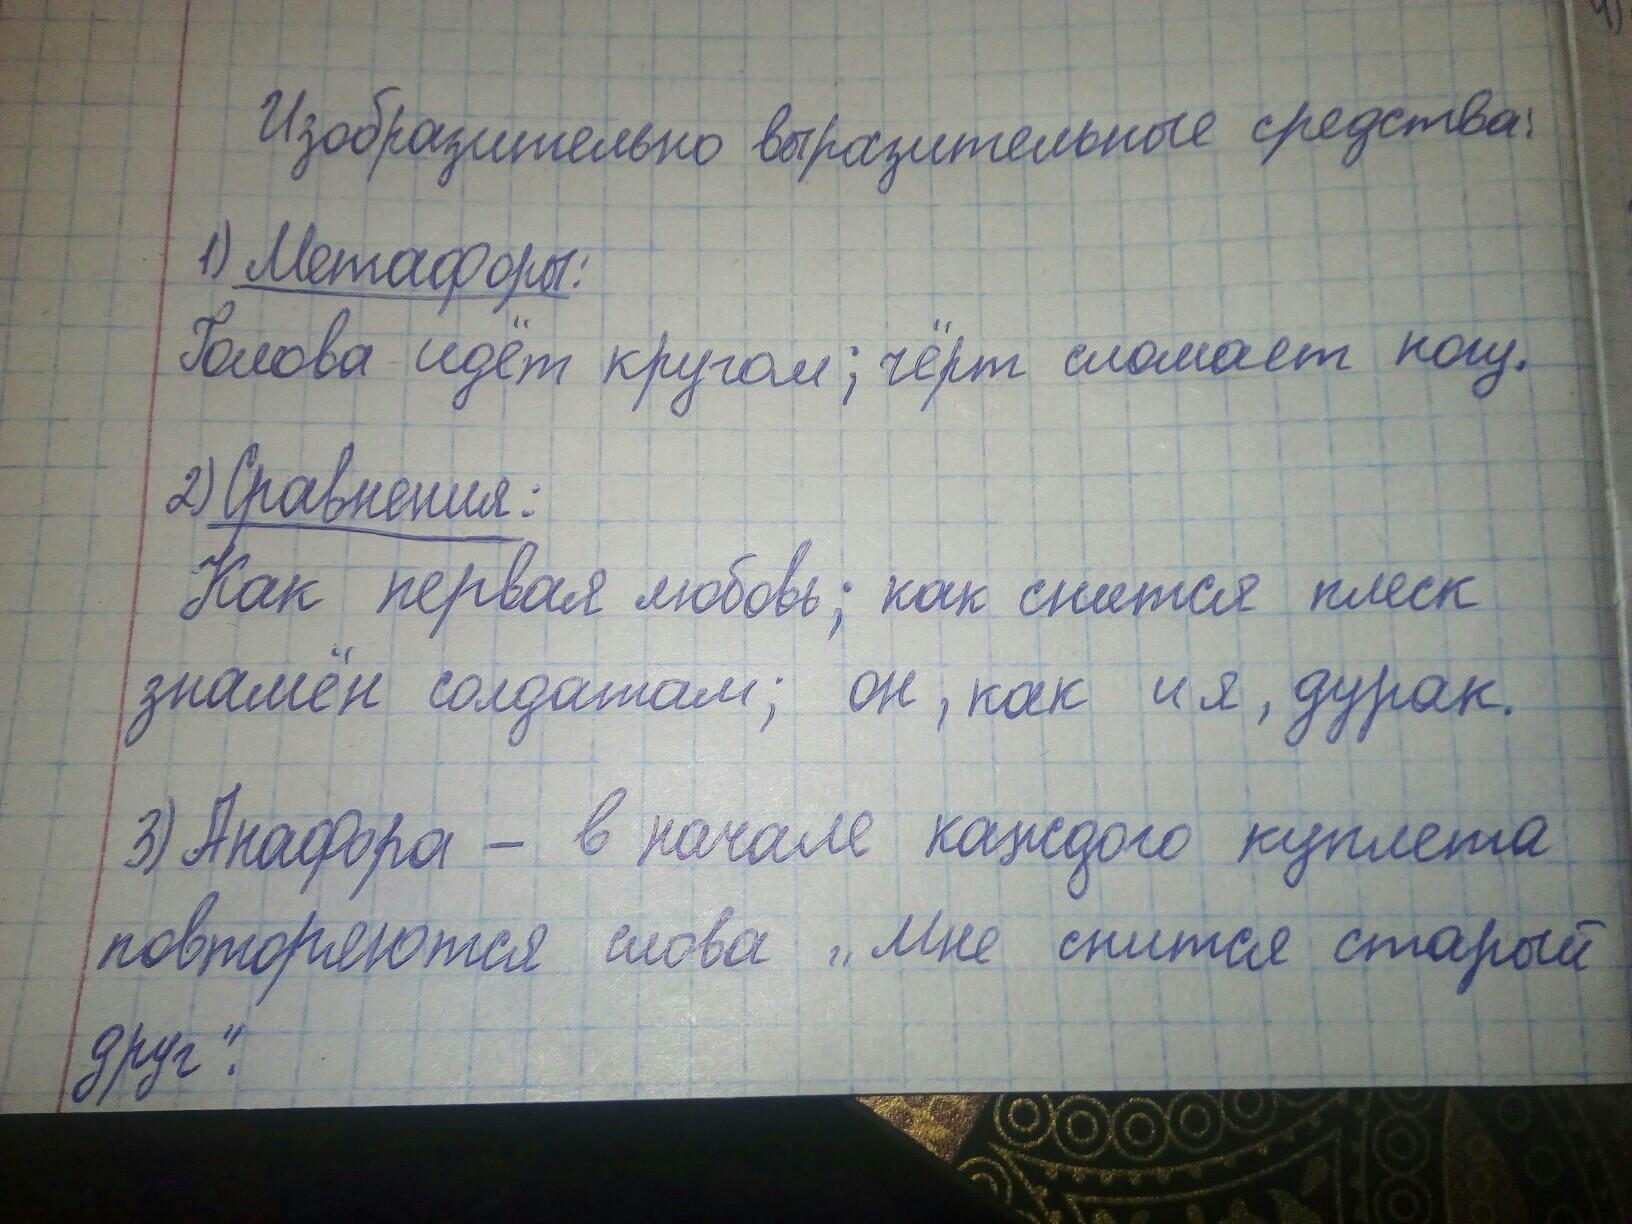 Изобразительно выразительные средства:
1) Метафоры:
Голова идёт кругом; чёрт сломает ногу.
2) Сравнения:
Как первая любовь; как снится плеск
знамён солдатам; он, как и я, дурак.
3) Анафора – в начале каждого куплета
повторяются слова „Мне снится старый
друг".